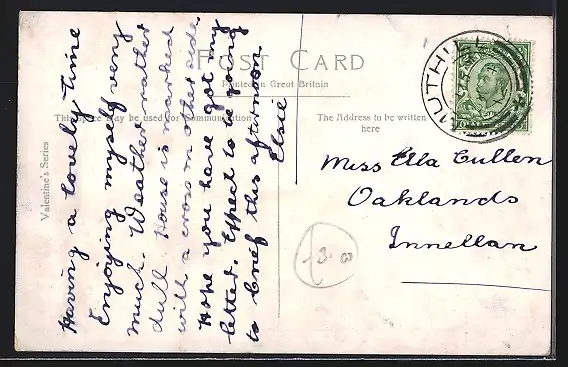 POST CARD
Printed in Great Britain
This space may be used for Communication
The Address to be written
here
Valentine's Series
MUTHILL
Having a lovely time
Enjoying myself very
much. Weather rather
dull. House is marked
with a cross on other side.
Hope you have got my
letter. Expect to be going
to Crieff this afternoon.
Elsie
Miss Ella Cullen
Oaklands
Innellan